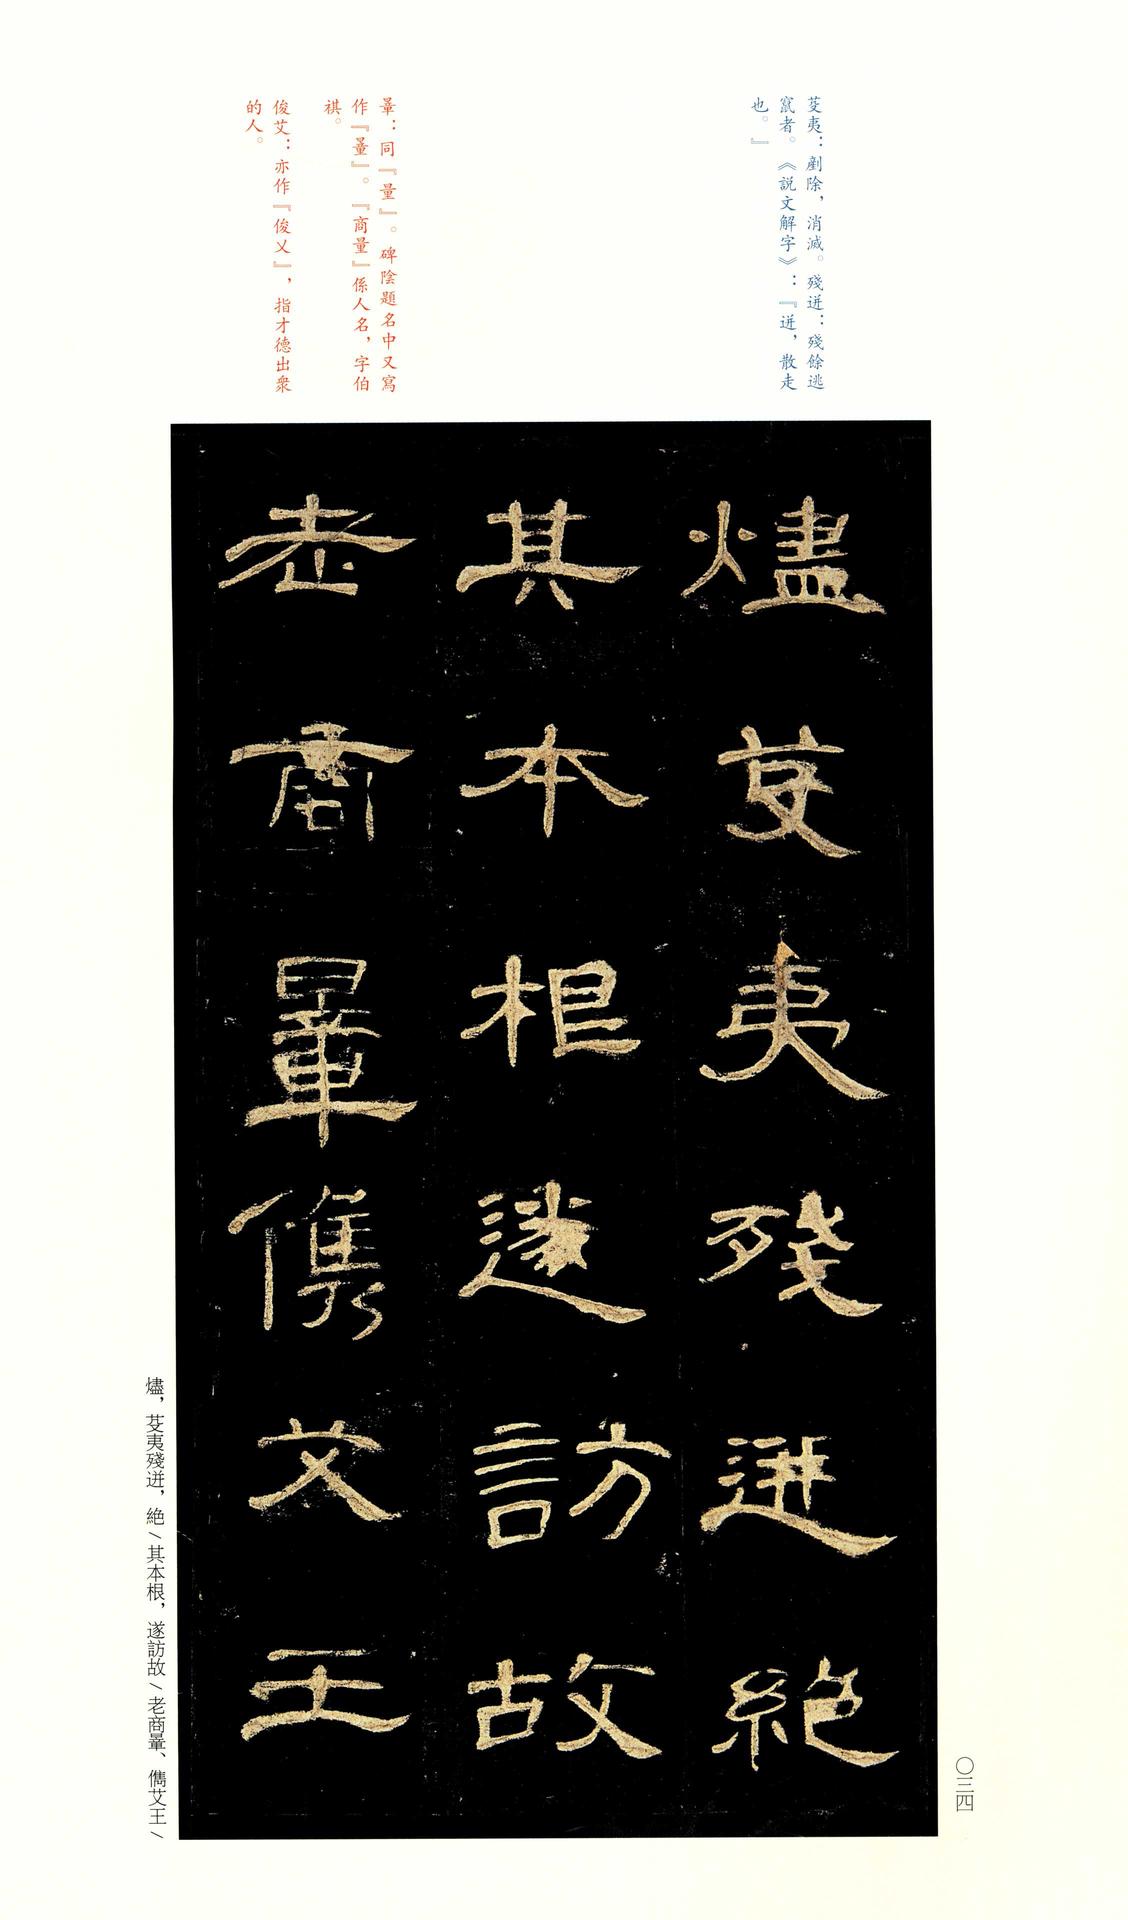 芟夷：剷除，消滅。殘迸：殘餘逃
竄者。《説文解字》：『迸，散走
也。』
暈：同『量』。碑陰題名中又寫
作『量』。『商量』係人名，字伯
祺。
俊艾：亦作『俊乂』，指才德出衆
的人。
燼芟夷殘迸絶
其本根遂訪故
老商暈儁艾王
燼，芟夷殘迸，絶／其本根，遂訪故／老商暈、儁艾王／
〇三四